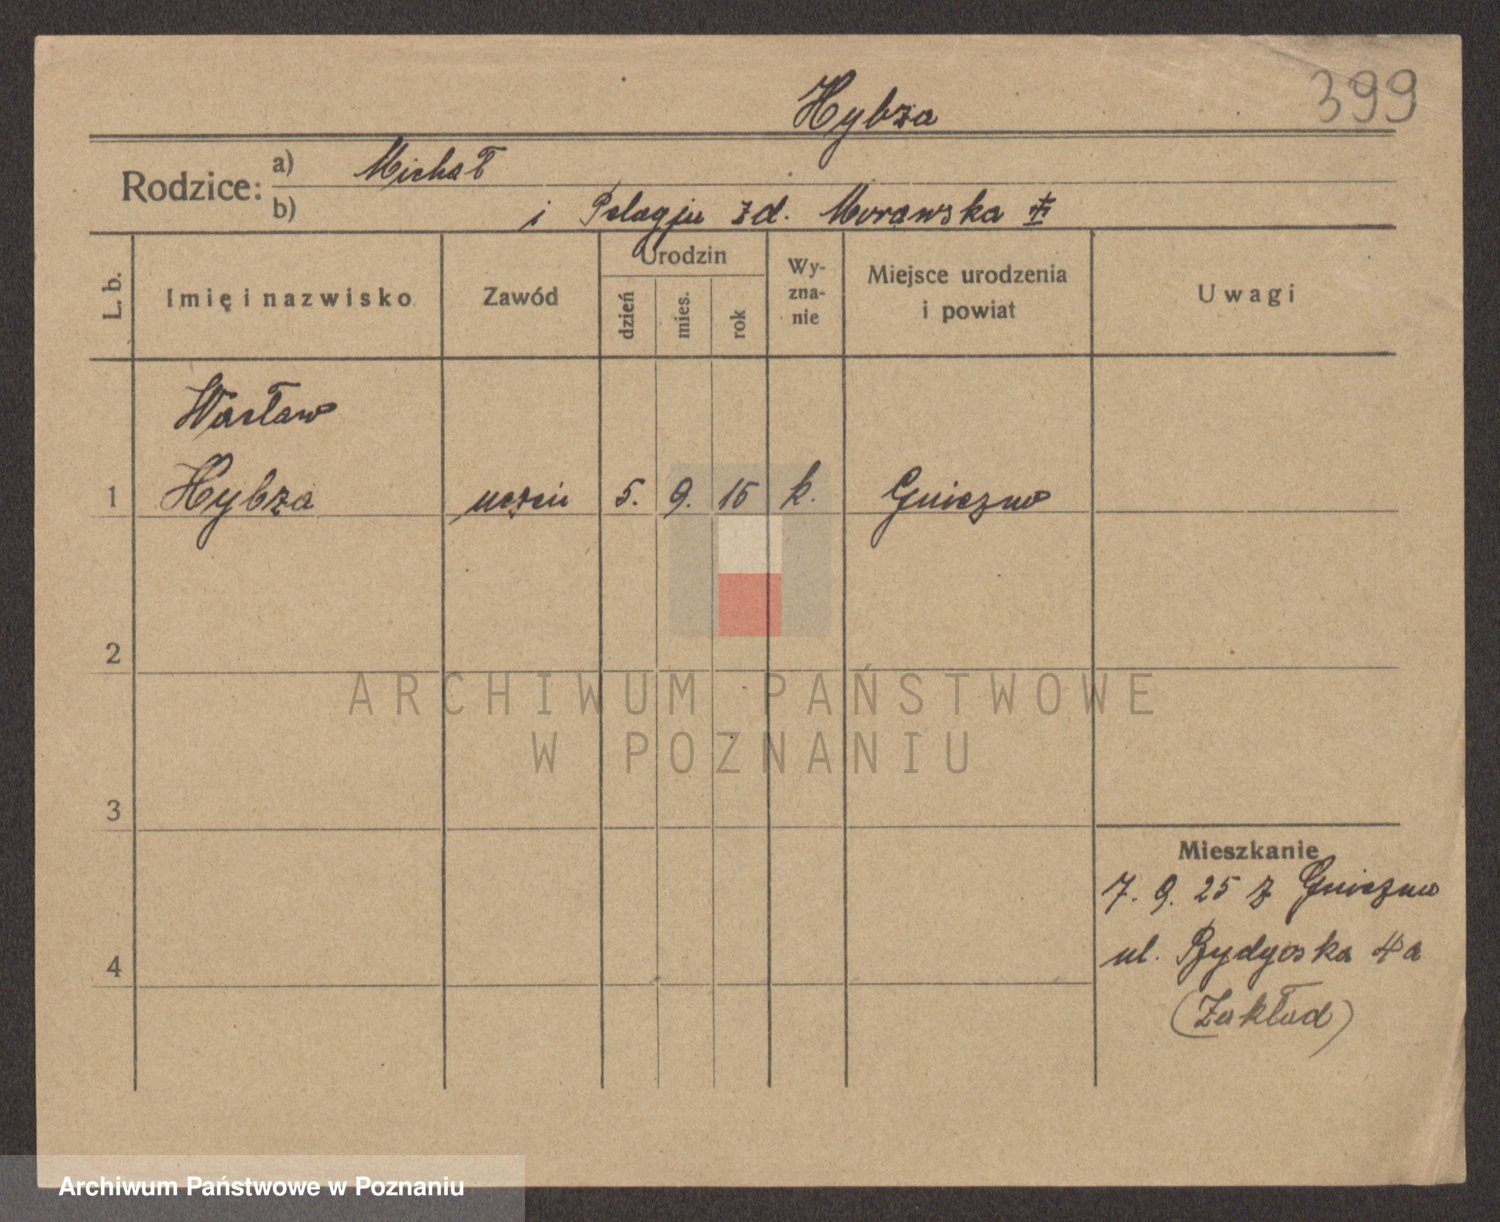 399
Hybza
Rodzice: a) Michał
b) i Pelagju zd. Morawska
L. b.
Imię i nazwisko
Zawód
Urodzin
dzień
mies.
rok
Wy-
zna-
nie
Miejsce urodzenia
i powiat
Uwagi
Wacław
1 Hybza uczeń 5. 9. 15 k. Gniezno
2
3
4
Mieszkanie
7. 9. 25 z Gniezna
ul. Bydgoska 4a
(Zakład)
ARCHIWUM PAŃSTWOWE
W POZNANIU
Archiwum Państwowe w Poznaniu